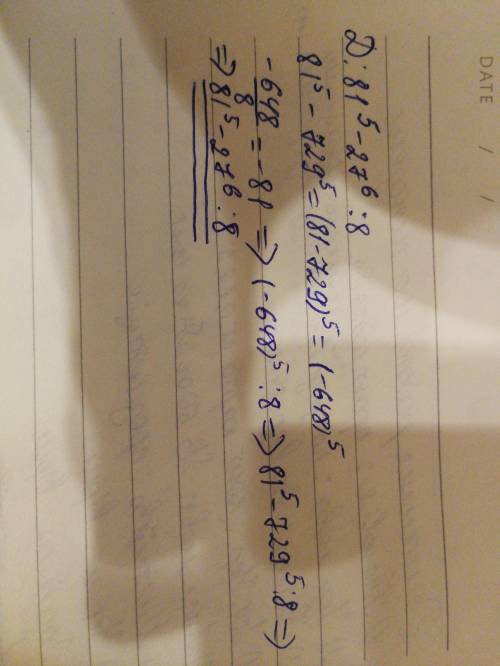 DATE / /
D: 81⁵-27⁶ : 8
81⁵ - 729⁵ = (81-729)⁵ = (-648)⁵
-648/8 = -81 => (-648)⁵ : 8 => 81⁵-729⁵ : 8 =>
=> 81⁵-27⁶ : 8